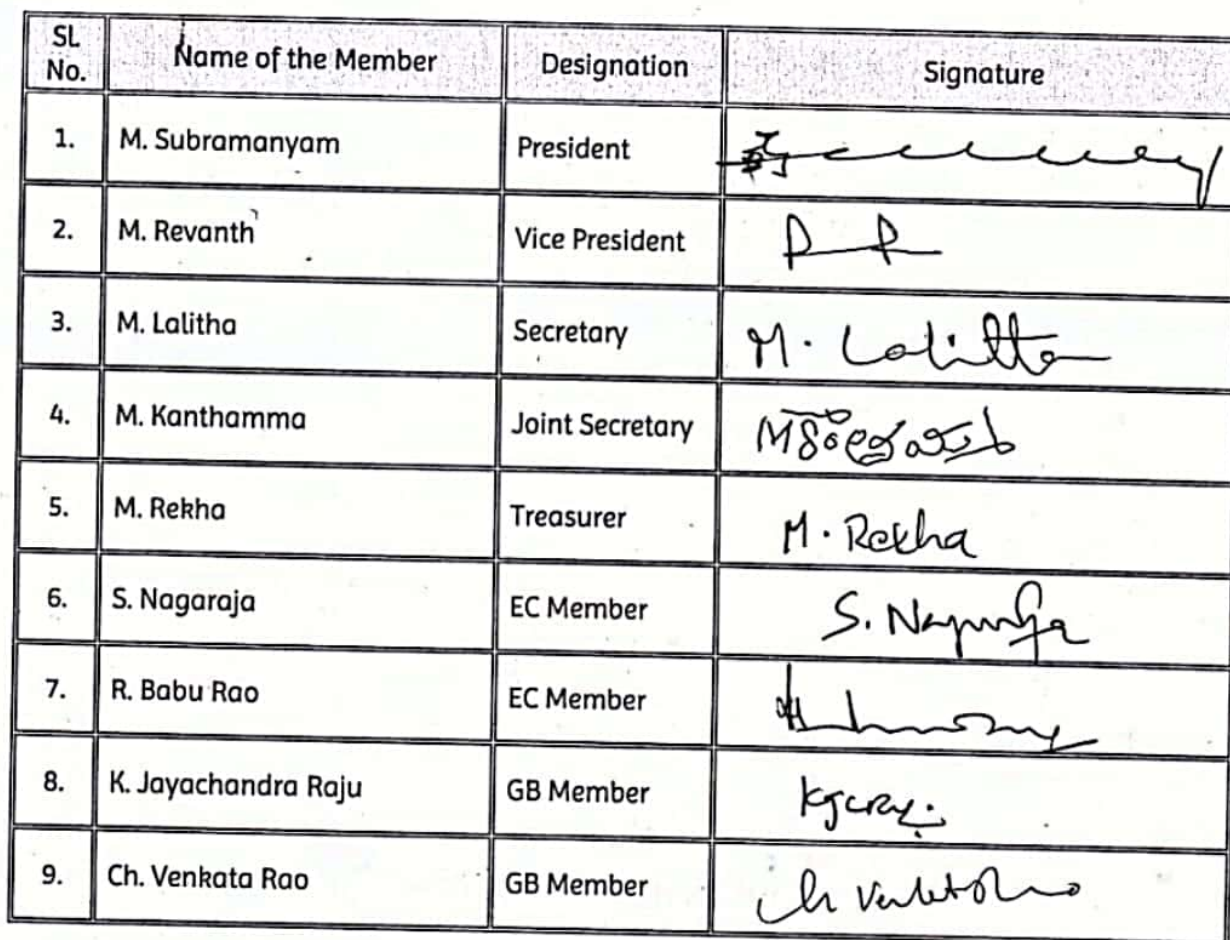 SL No. Name of the Member Designation Signature
1. M. Subramanyam President
2. M. Revanth Vice President
3. M. Lalitha Secretary M. Lalitha
4. M. Kanthamma Joint Secretary
5. M. Rekha Treasurer M. Rekha
6. S. Nagaraja EC Member S. Nagaraja
7. R. Babu Rao EC Member
8. K. Jayachandra Raju GB Member
9. Ch. Venkata Rao GB Member